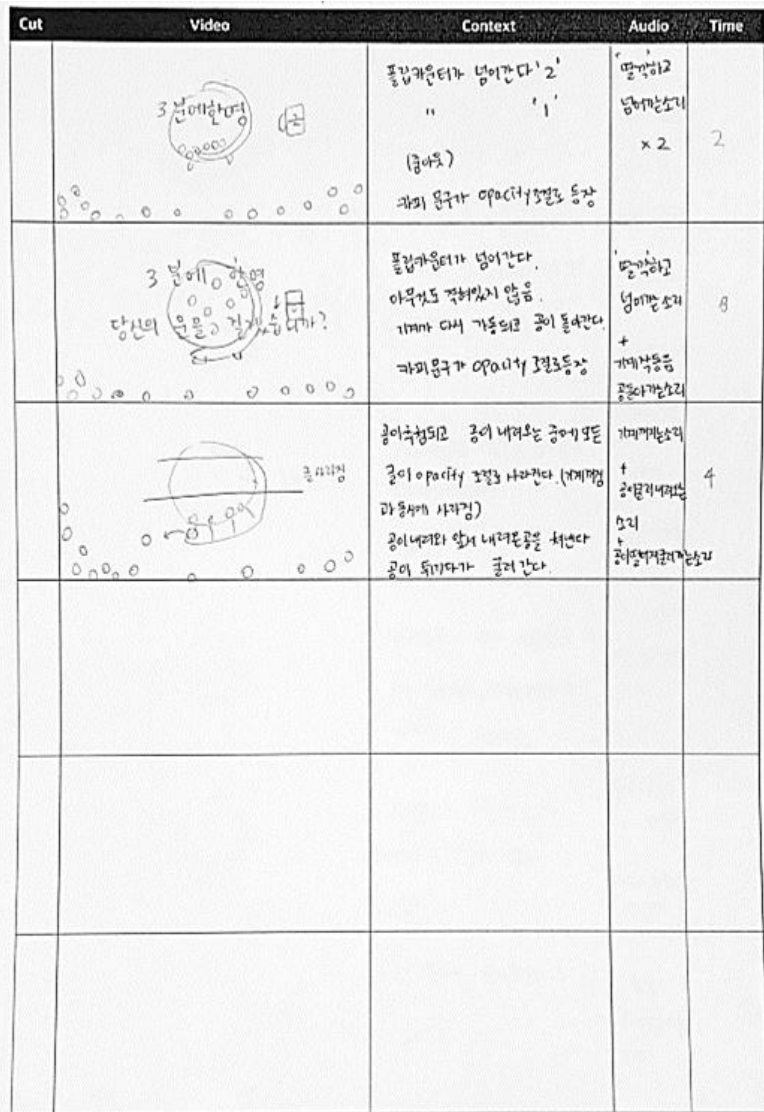 Cut Video Context Audio Time
3분에한명
2
플립카운터가 넘어간다 '2'
" '1'
(줌아웃)
카피 문구가 opacity조절로 등장
'딸깍'하고
넘어가는소리
× 2
2
3분에 한명
당신의 우물
니까?
플립카운터가 넘어간다.
아무것도 적혀있지 않음.
기계가 다시 가동되고 공이 돌아간다.
카피문구가 opacity 조절로등장
'딸깍'하고
넘어가는 소리
+
기계작동음
공돌아가는소리
8
글사라짐
공이추첨되고 공이 내려오는 중에 모든
글이 opacity 조절로 사라진다. (기계꺼짐
과 동시에 사라짐)
공이내려와 앞서 내려온공을 쳐낸다
공이 튀기다가 굴러 간다.
기계꺼지는소리
+
공이굴러내려오는
소리
+
공이떨어져굴러가는소리
4